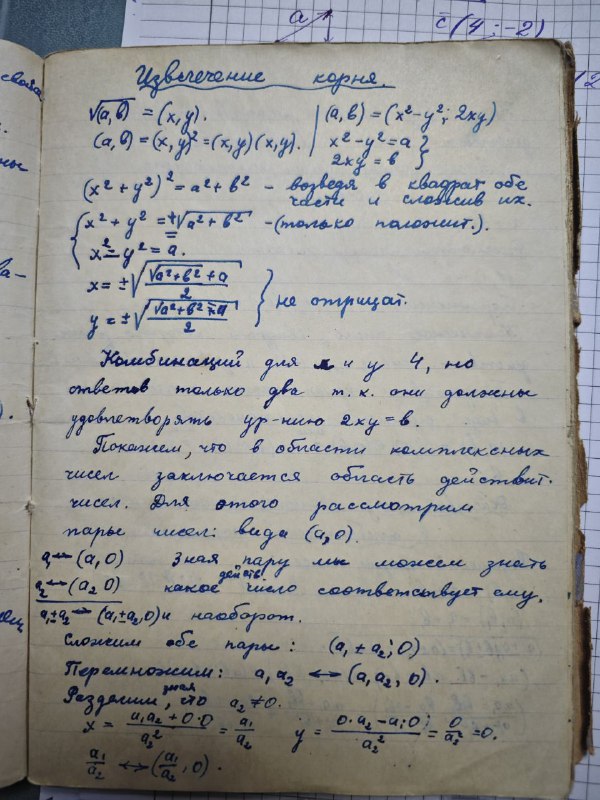 a
c̄(4; -2)
Извлечение корня.
√(a,b) = (x,y). | (a,b)=(x²-y²; 2xy)
(a,b)=(x,y)²=(x,y)(x,y). | x²-y²=a }
2xy=b }
(x²+y²)²=a²+b² - возведя в квадрат обе
части и сложив их.
{ x²+y²=±√a²+b² -(только положит.).
x²-y²=a.
x=±√((√a²+b²+a)/2)
y=±√((√a²+b²-a)/2) } не отрицат.
Комбинаций для x и y 4, но
ответов только два т.к. они должны
удовлетворять ур-нию 2xy=b.
Покажем, что в области комплексных
чисел заключается область действит.
чисел. Для этого рассмотрим
пары чисел: вида (a,0).
a₁↔(a,0) Зная пару мы можем знать
a₂↔(a₂0) какое действ. число соответствует ему.
a₁±a₂↔(a₁±a₂,0) и наоборот.
Сложим обе пары: (a₁±a₂;0)
Перемножим: a₁a₂ ↔ (a₁a₂, 0).
Разделим, зная что a₂≠0.
x = (a₁a₂+0·0)/a₂² = a₁/a₂ y = (0·a₂-a₁0)/a₂² = 0/a₂² =0.
a₁/a₂ ↔ (a₁/a₂, 0).